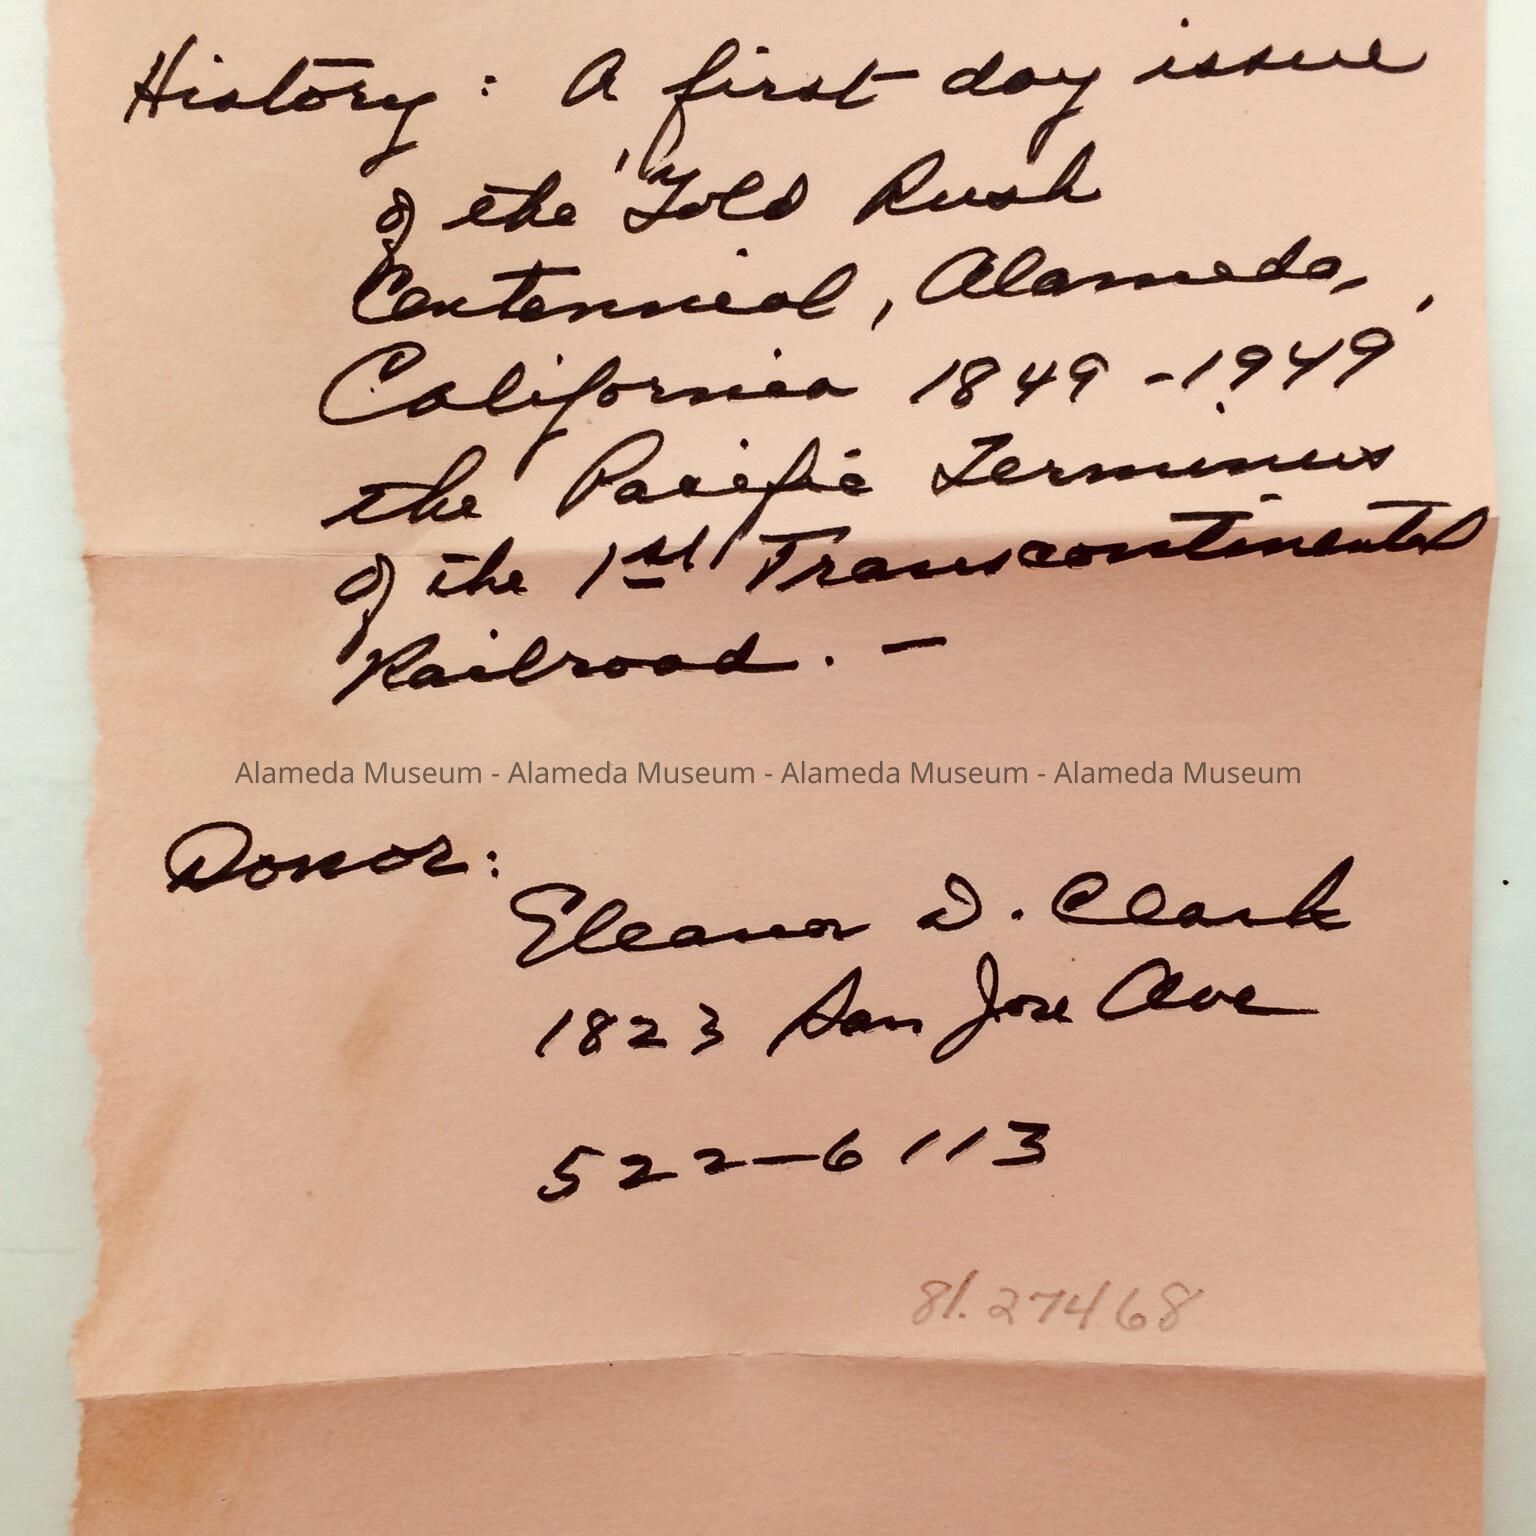 History : A first day issue
of the "Gold Rush
Centennial, Alameda,
California 1849-1949
the Pacific Terminus
of the 1st Transcontinental
Railroad. -
Alameda Museum - Alameda Museum - Alameda Museum - Alameda Museum
Donor:
Eleanor D. Clark
1823 San Jose Ave
522-6113
81.27468